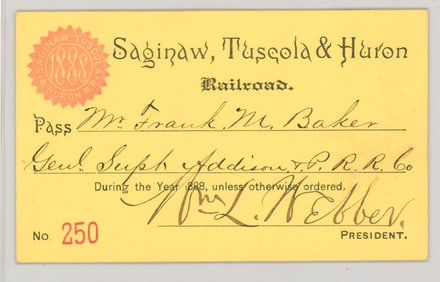 SAGINAW TUSCOLA & HURON R.R.
1888
Saginaw, Tuscola & Huron
Railroad.
Pass Mr. Frank. M. Baker
Genl. Supt. Addison & P. R. R. Co
During the Year 1888, unless otherwise ordered.
Wm L. Webber.
No. 250 PRESIDENT.